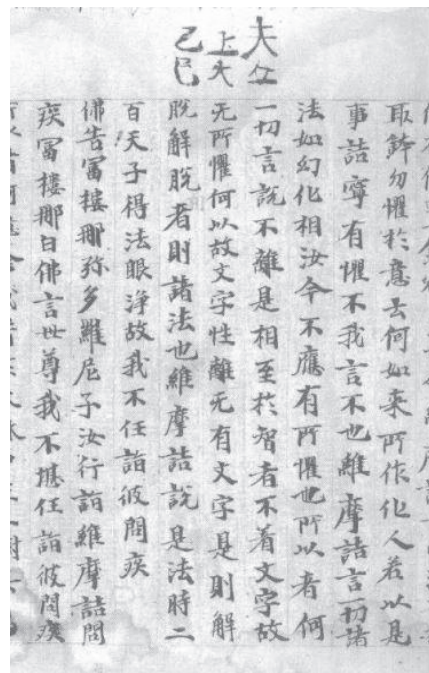 上大
取鉢勿懼於意云何如来所作化人若以是
事詰寧有懼不我言不也維摩詰言一切諸
法如幻化相汝今不應有所懼也所以者何
一切言說不離是相至於智者不着文字故
无所懼何以故文字性離无有文字是則解
脫解脫者則諸法也維摩詰說是法時二
百天子得法眼淨故我不任詣彼問疾
佛告冨樓那弥多羅尼子汝行詣維摩詰問
疾冨樓那白佛言世尊我不堪任詣彼問疾